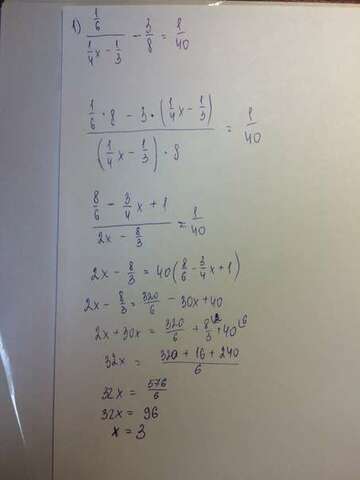 1) (1/6)/(1/4x - 1/3) - 3/8 = 1/40
(1/6 · 8 - 3 · (1/4x - 1/3))/((1/4x - 1/3) · 8) = 1/40
(8/6 - 3/4x + 1)/(2x - 8/3) = 1/40
2x - 8/3 = 40(8/6 - 3/4x + 1)
2x - 8/3 = 320/6 - 30x + 40
2x + 30x = 320/6 + 8/3 \2 + 40 \6
32x = (320 + 16 + 240)/6
32x = 576/6
32x = 96
x = 3